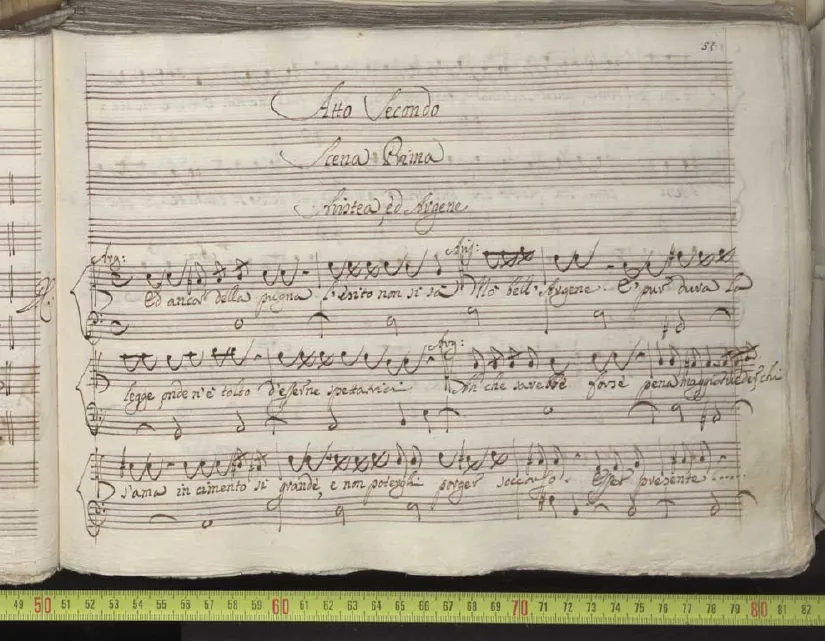 51
Atto Secondo
Scena Prima
Aristea, ed Argene
Arg: Aris:
Ed ancor della pugna l'esito non si sà No bell' Argene. E' pur dura la
Arg:
legge onde n'è tolto d'esserne spettatrici Ah che sarebbe forse pena maggior veder chi
s'ama in cimento si grande, e non potergli porger soccorso. Esser presente.....
49 50 51 52 53 54 55 56 57 58 59 60 61 62 63 64 65 66 67 68 69 70 71 72 73 74 75 76 77 78 79 80 81 82